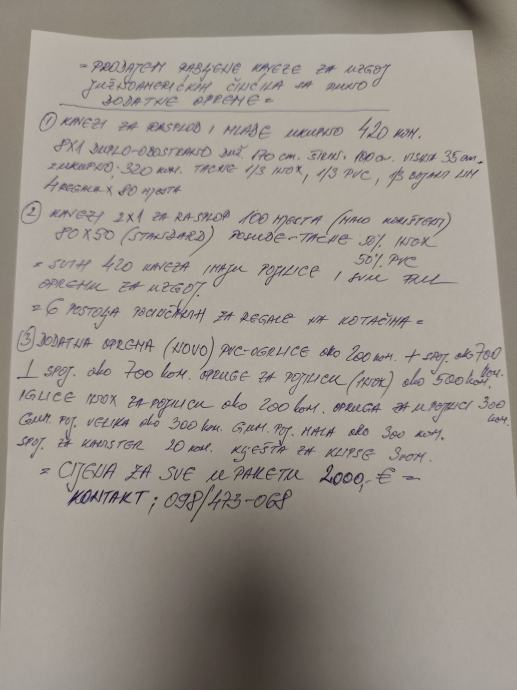 = PRODAJEM RABLJENE KAVEZE ZA UZGOJ
JUŽNOAMERIČKIH ČINČILA SA PUNO
DODATNE OPREME =
① KAVEZI ZA RASPLOD I MLADE UKUPNO 420 KOM.
8X1 DUPLO-OBOSTRANO DUŽ. 170 cm. ŠIRINA 100 cm. VISINA 35 cm.
=UKUPNO 320 KOM. TACNE 1/3 INOX, 1/3 PVC, 1/3 BOJANI LIM
4 REGALA X 80 MJESTA
② KAVEZI 2X1 ZA RASPLOD 100 MJESTA (MALO KORIŠTENI)
80X50 (STANDARD) POSUDE-TACNE 50% INOX
50% PVC
= SVIH 420 KAVEZA IMAJU POJILICE I SVU
OPREMU ZA UZGOJ.
= 6 POSTOLJA POCINČANIH ZA REGALE NA KOTAČIMA =
③ DODATNA OPREMA (NOVO) PVC-OGRLICE OKO 200 KOM. + SPOJ. OKO 700 KOM.
⊥ SPOJ. OKO 700 KOM. OPRUGE ZA POJILICU (INOX) OKO 500 KOM.
IGLICE INOX ZA POJILICU OKO 200 KOM. OPRUGA ZA U POJILICI 300 KOM.
GUM. POJ. VELIKA OKO 300 KOM. GUM. POJ. MALA OKO 300 KOM.
SPOJ. ZA KANISTER 20 KOM. KLJEŠTA ZA KLIPSE 3 KOM.
= CIJENA ZA SVE U PAKETU 2000,-€ =
KONTAKT; 098/473-068